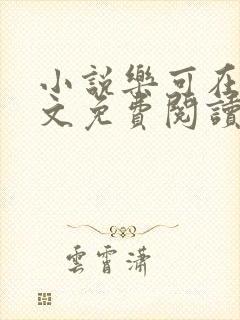 小說樂可在
文免費閱讀
雲霄瀟